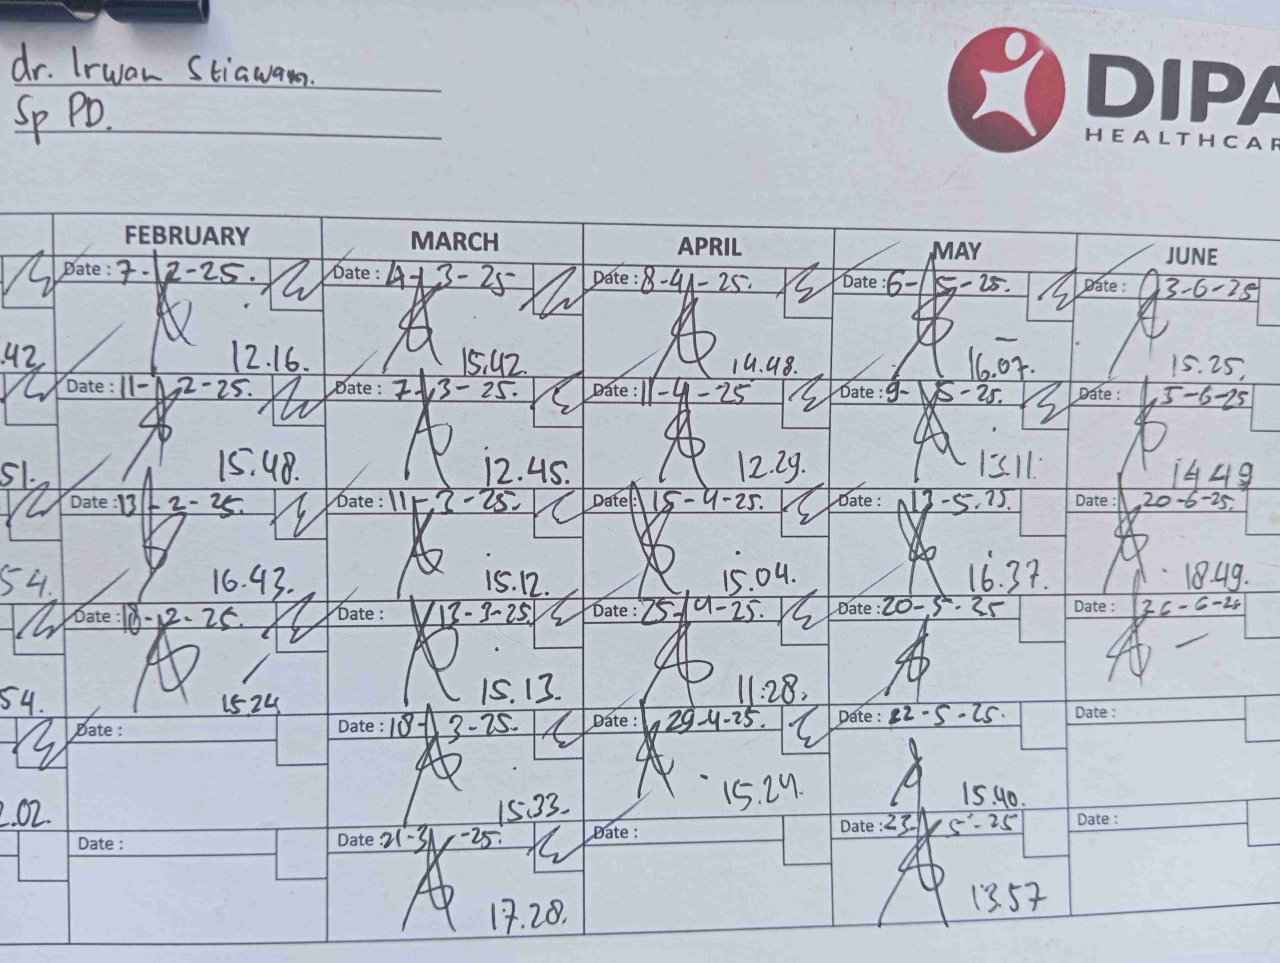 dr. Irwan Stiawan.
Sp PD.
DIPA
HEALTHCAR
FEBRUARY MARCH APRIL MAY JUNE
Date : 7-2-25. Date : 4-3-25 Date : 8-4-25. Date : 6-5-25. Date : 3-6-25
.42. 12.16. 15.42. 14.48. 16.07. 15.25.
Date : 11-2-25. Date : 7-3-25. Date : 11-4-25 Date : 9-5-25. Date : 5-6-25
51. 15.48. 12.45. 12.29. 13.11. 14.49
Date : 13-2-25. Date : 11-3-25. Date : 15-4-25. Date : 13-5-25. Date : 20-6-25.
54. 16.43. 15.12. 15.04. 16.37. 18.49.
Date : 18-2-25. Date : 13-3-25 Date : 25-4-25. Date : 20-5-25 Date :
54. 15.24 15.13. 11.28.
Date : Date : 18-3-25. Date : 29-4-25. Date : 22-5-25. Date :
2.02. 15.33. 15.24. 15.40.
Date : Date : 21-3-25. Date : Date : 23-5-25 Date :
17.28. 13.57